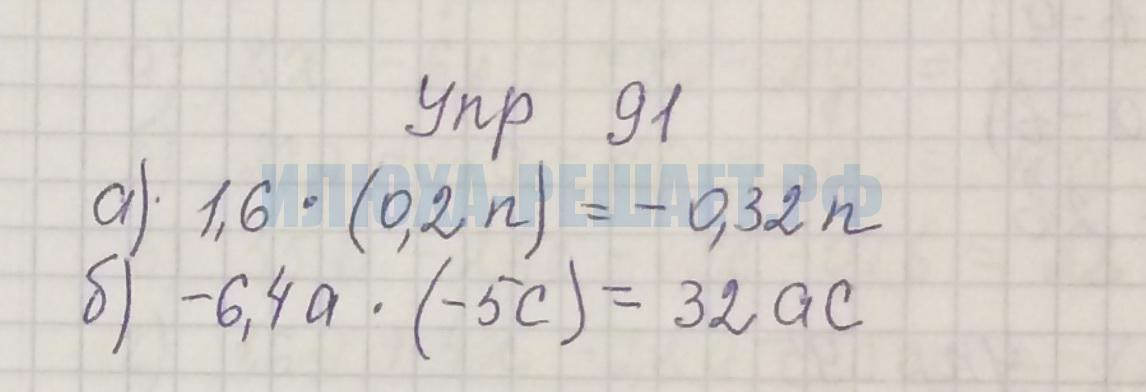 Упр 91
ИЛЮХА-РЕШАЕТ.РФ
а) 1,6 · (0,2n) = -0,32n
б) -6,4a · (-5c) = 32ac